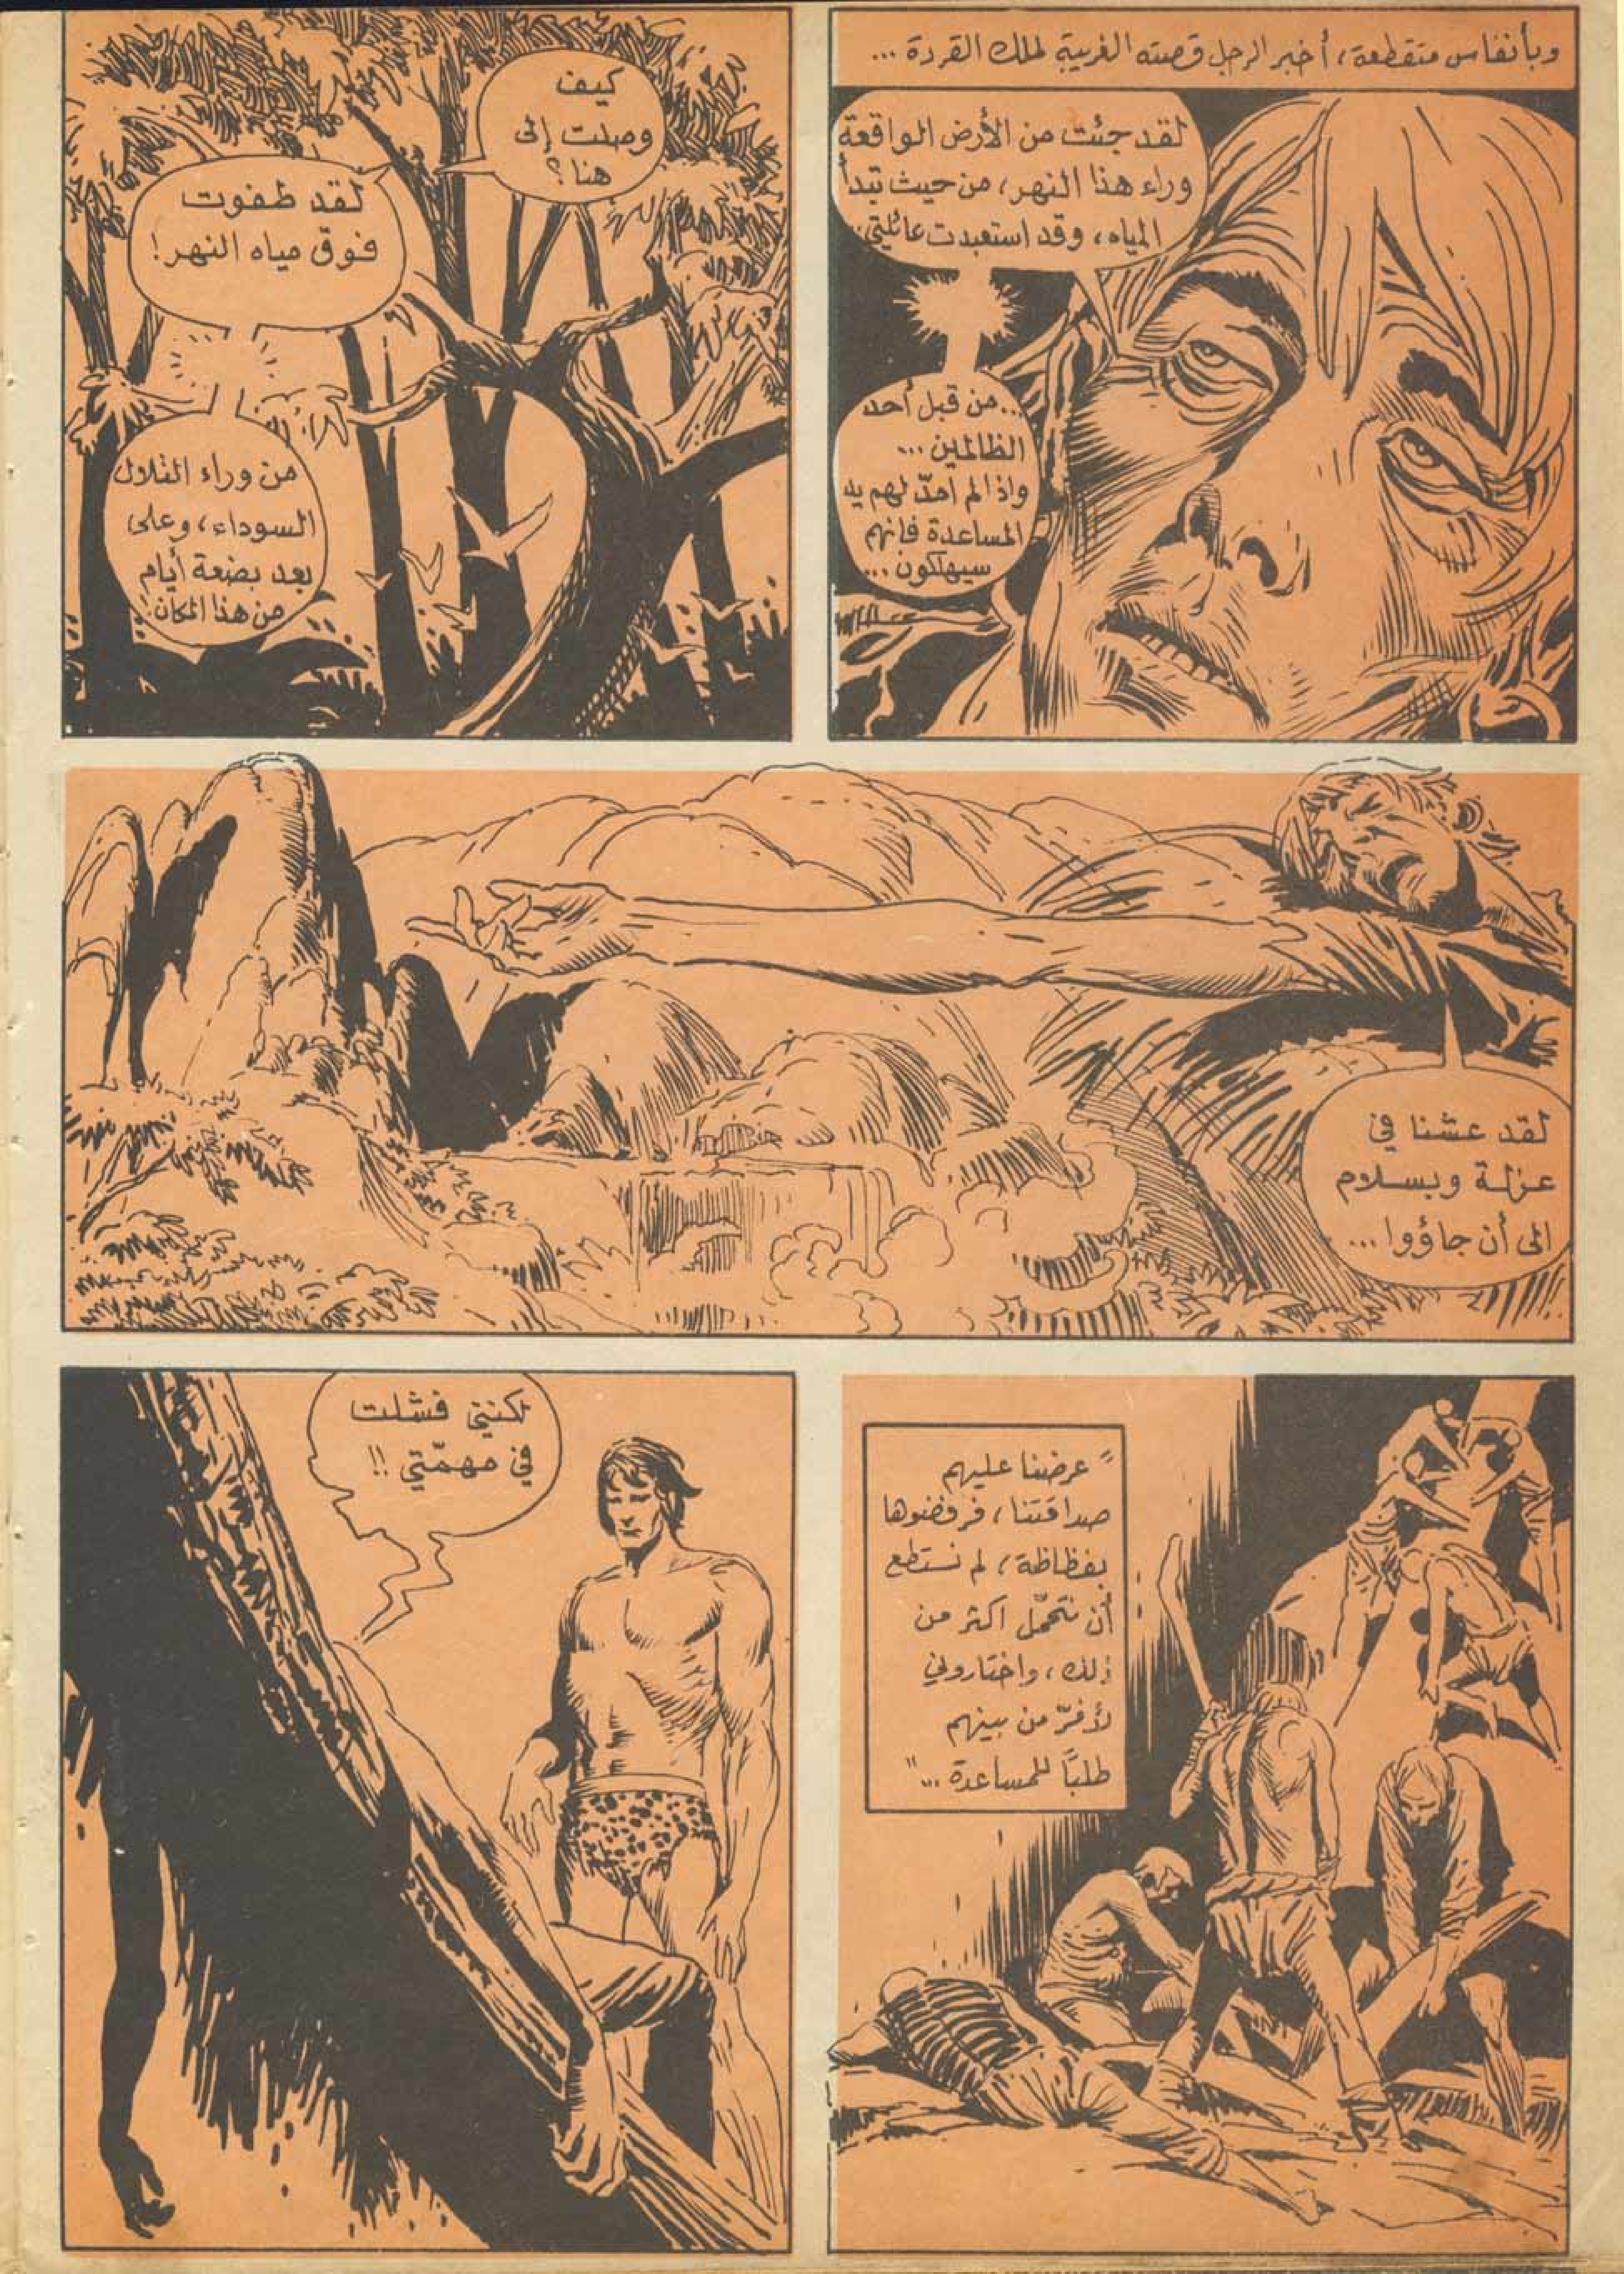 وبأنفاس متقطعة، أخبر الرجل قصته الغريبة لملك القردة ...
لقد جئت من الأرض الواقعة
وراء هذا النهر، من حيث تبدأ
المياه، وقد استعبدت عائلتي..
...من قبل أحد
الظالمين ...
واذا لم امدّ لهم يد
المساعدة فانهم
سيهلكون ...
كيف
وصلت إلى
هنا؟
لقد طفوت
فوق مياه النهر!
من وراء التلال
السوداء، وعلى
بعد بضعة أيام
من هذا المكان!
لقد عشنا في
عزلة وبسلام
الى أن جاؤوا ...
" عرضنا عليهم
صداقتنا، فرفضوها
بفظاظة، لم نستطع
أن نتحمّل اكثر من
ذلك، واختاروني
لأفرّ من بينهم
طلبًا للمساعدة ... "
لكنني فشلت
في مهمّتي !!